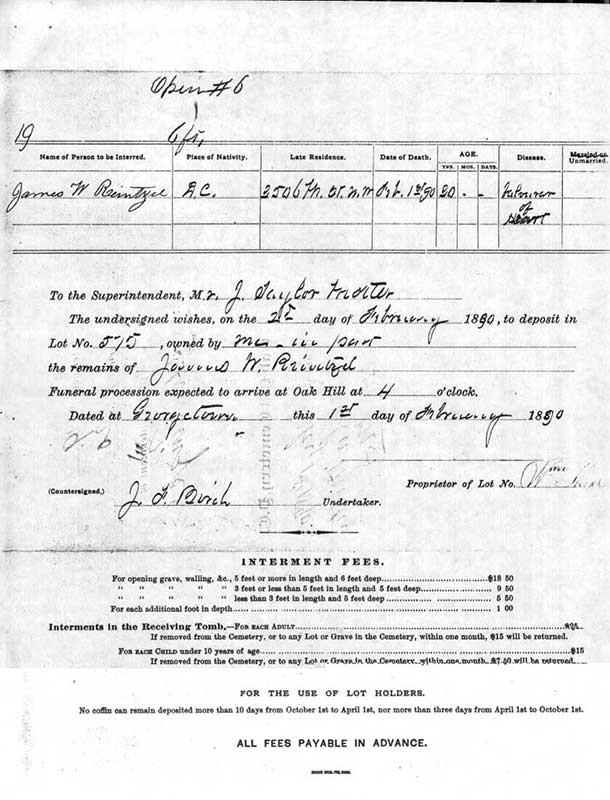 Open #6
19
6ft,
Name of Person to be Interred. Place of Nativity. Late Residence. Date of Death. AGE. Disease. Married or Unmarried.
YRS. MOS. DAYS.
James W Reintzel D.C. Feb. 1st/90 - -
of
Heart
To the Superintendent, Mr. J. Taylor
The undersigned wishes, on the 2d day of February 1890, to deposit in
Lot No. 575, owned by me - in part
the remains of James W. Reintzel
Funeral procession expected to arrive at Oak Hill at 4 o'clock.
Dated at Georgetown this 1st day of February 1890
Proprietor of Lot No. Wm
(Countersigned,) J. F. Birch Undertaker.
INTERMENT FEES.
For opening grave, walling, &c., 5 feet or more in length and 6 feet deep $18 50
" " " " 3 feet or less than 5 feet in length and 5 feet deep 9 50
" " " " less than 3 feet in length and 5 feet deep 5 50
For each additional foot in depth 1 00
Interments in the Receiving Tomb.—FOR EACH ADULT $25
If removed from the Cemetery, or to any Lot or Grave in the Cemetery, within one month, $15 will be returned.
FOR EACH CHILD under 10 years of age $15
If removed from the Cemetery, or to any Lot or Grave in the Cemetery, within one month, $7.50 will be returned
FOR THE USE OF LOT HOLDERS.
No coffin can remain deposited more than 10 days from October 1st to April 1st, nor more than three days from April 1st to October 1st.
ALL FEES PAYABLE IN ADVANCE.